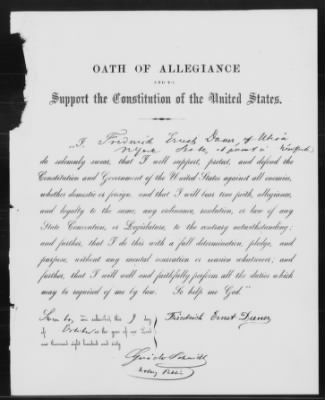 OATH OF ALLEGIANCE
AND TO
Support the Constitution of the United States.
"I, Ernst of
do solemnly swear, that I will support, protect, and defend the
Constitution and Government of the United States against all enemies,
whether domestic or foreign, and that I will bear true faith, allegiance,
and loyalty to the same, any ordinance, resolution, or law of any
State Convention, or Legislature, to the contrary notwithstanding;
and further, that I do this with a full determination, pledge, and
purpose, without any mental reservation or evasion whatsoever; and
further, that I will well and faithfully perform all the duties which
may be required of me by law. So help me God."
Sworn to, and subscribed, this day
of October in the year of our Lord
one thousand eight hundred and sixty
Friedrich Ernst
Guido
Notary Public